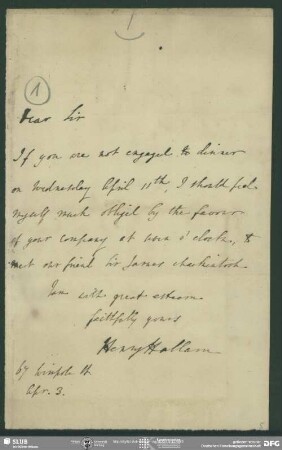 1
Dear Sir
If you are not engaged to dinner
on Wednesday April 11th, I should feel
myself much obliged by the favour
of your company at seven o'clock, to
meet our friend Sir James Mackintosh.
I am with great esteem
faithfully yours
Henry Hallam
67 Wimpole St
Apr. 3.
SLUB
DFG